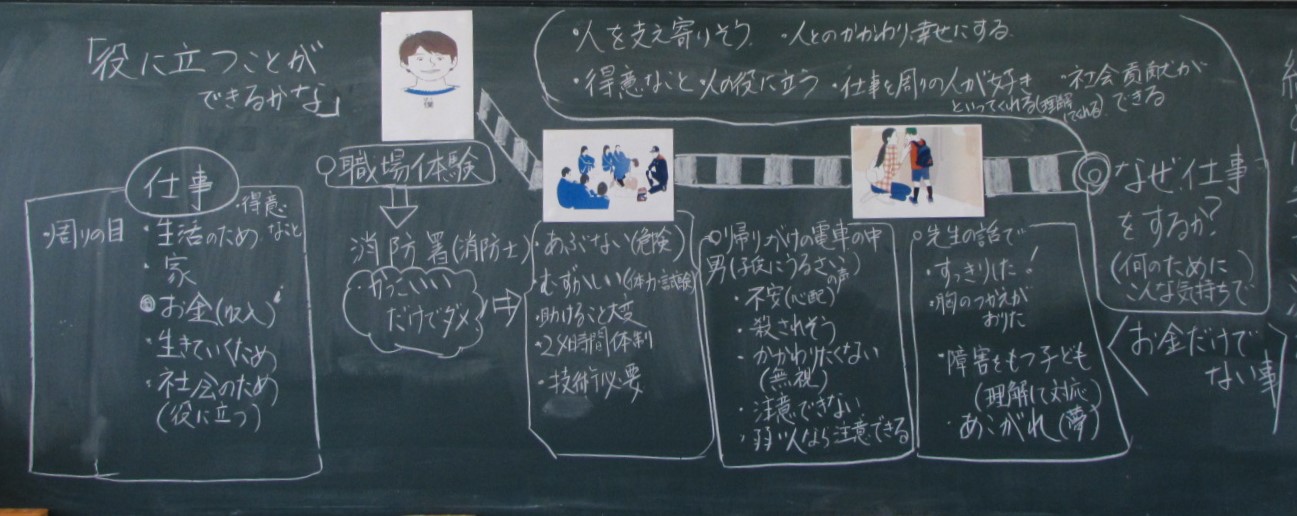 「役に立つことが
できるかな」
仕事
・周りの目
・得意なこと
・生活のため
・家
◎お金(収入)
・生きていくため
・社会のため
(役に立つ)
○職場体験
消防署(消防士)
かっこいい
だけでダメ
・あぶない(危険)
むずかしい(体力・試験)
・助けること大変
・24時間体制
・技術必要
○帰りがけの電車の中
男(子供にうるさい)
の声
・不安(心配)
・殺されそう
・かかわりたくない
(無視)
・注意できない
・弱い人なら注意できる
○先生の話で
・すっきりした!
・胸のつかえが
おりた
・障害をもつ子ども
(理解して対応)
・あこがれ(夢)
・人を支え寄りそう ・人とのかかわり幸せにする
・得意なこと人の役に立つ ・仕事を周りの人が好き
といってくれる(理解
してくれる)
・社会貢献が
できる
◎なぜ仕事
をするか?
(何のために)
こんな気持ちで
〈お金だけで
ない事〉